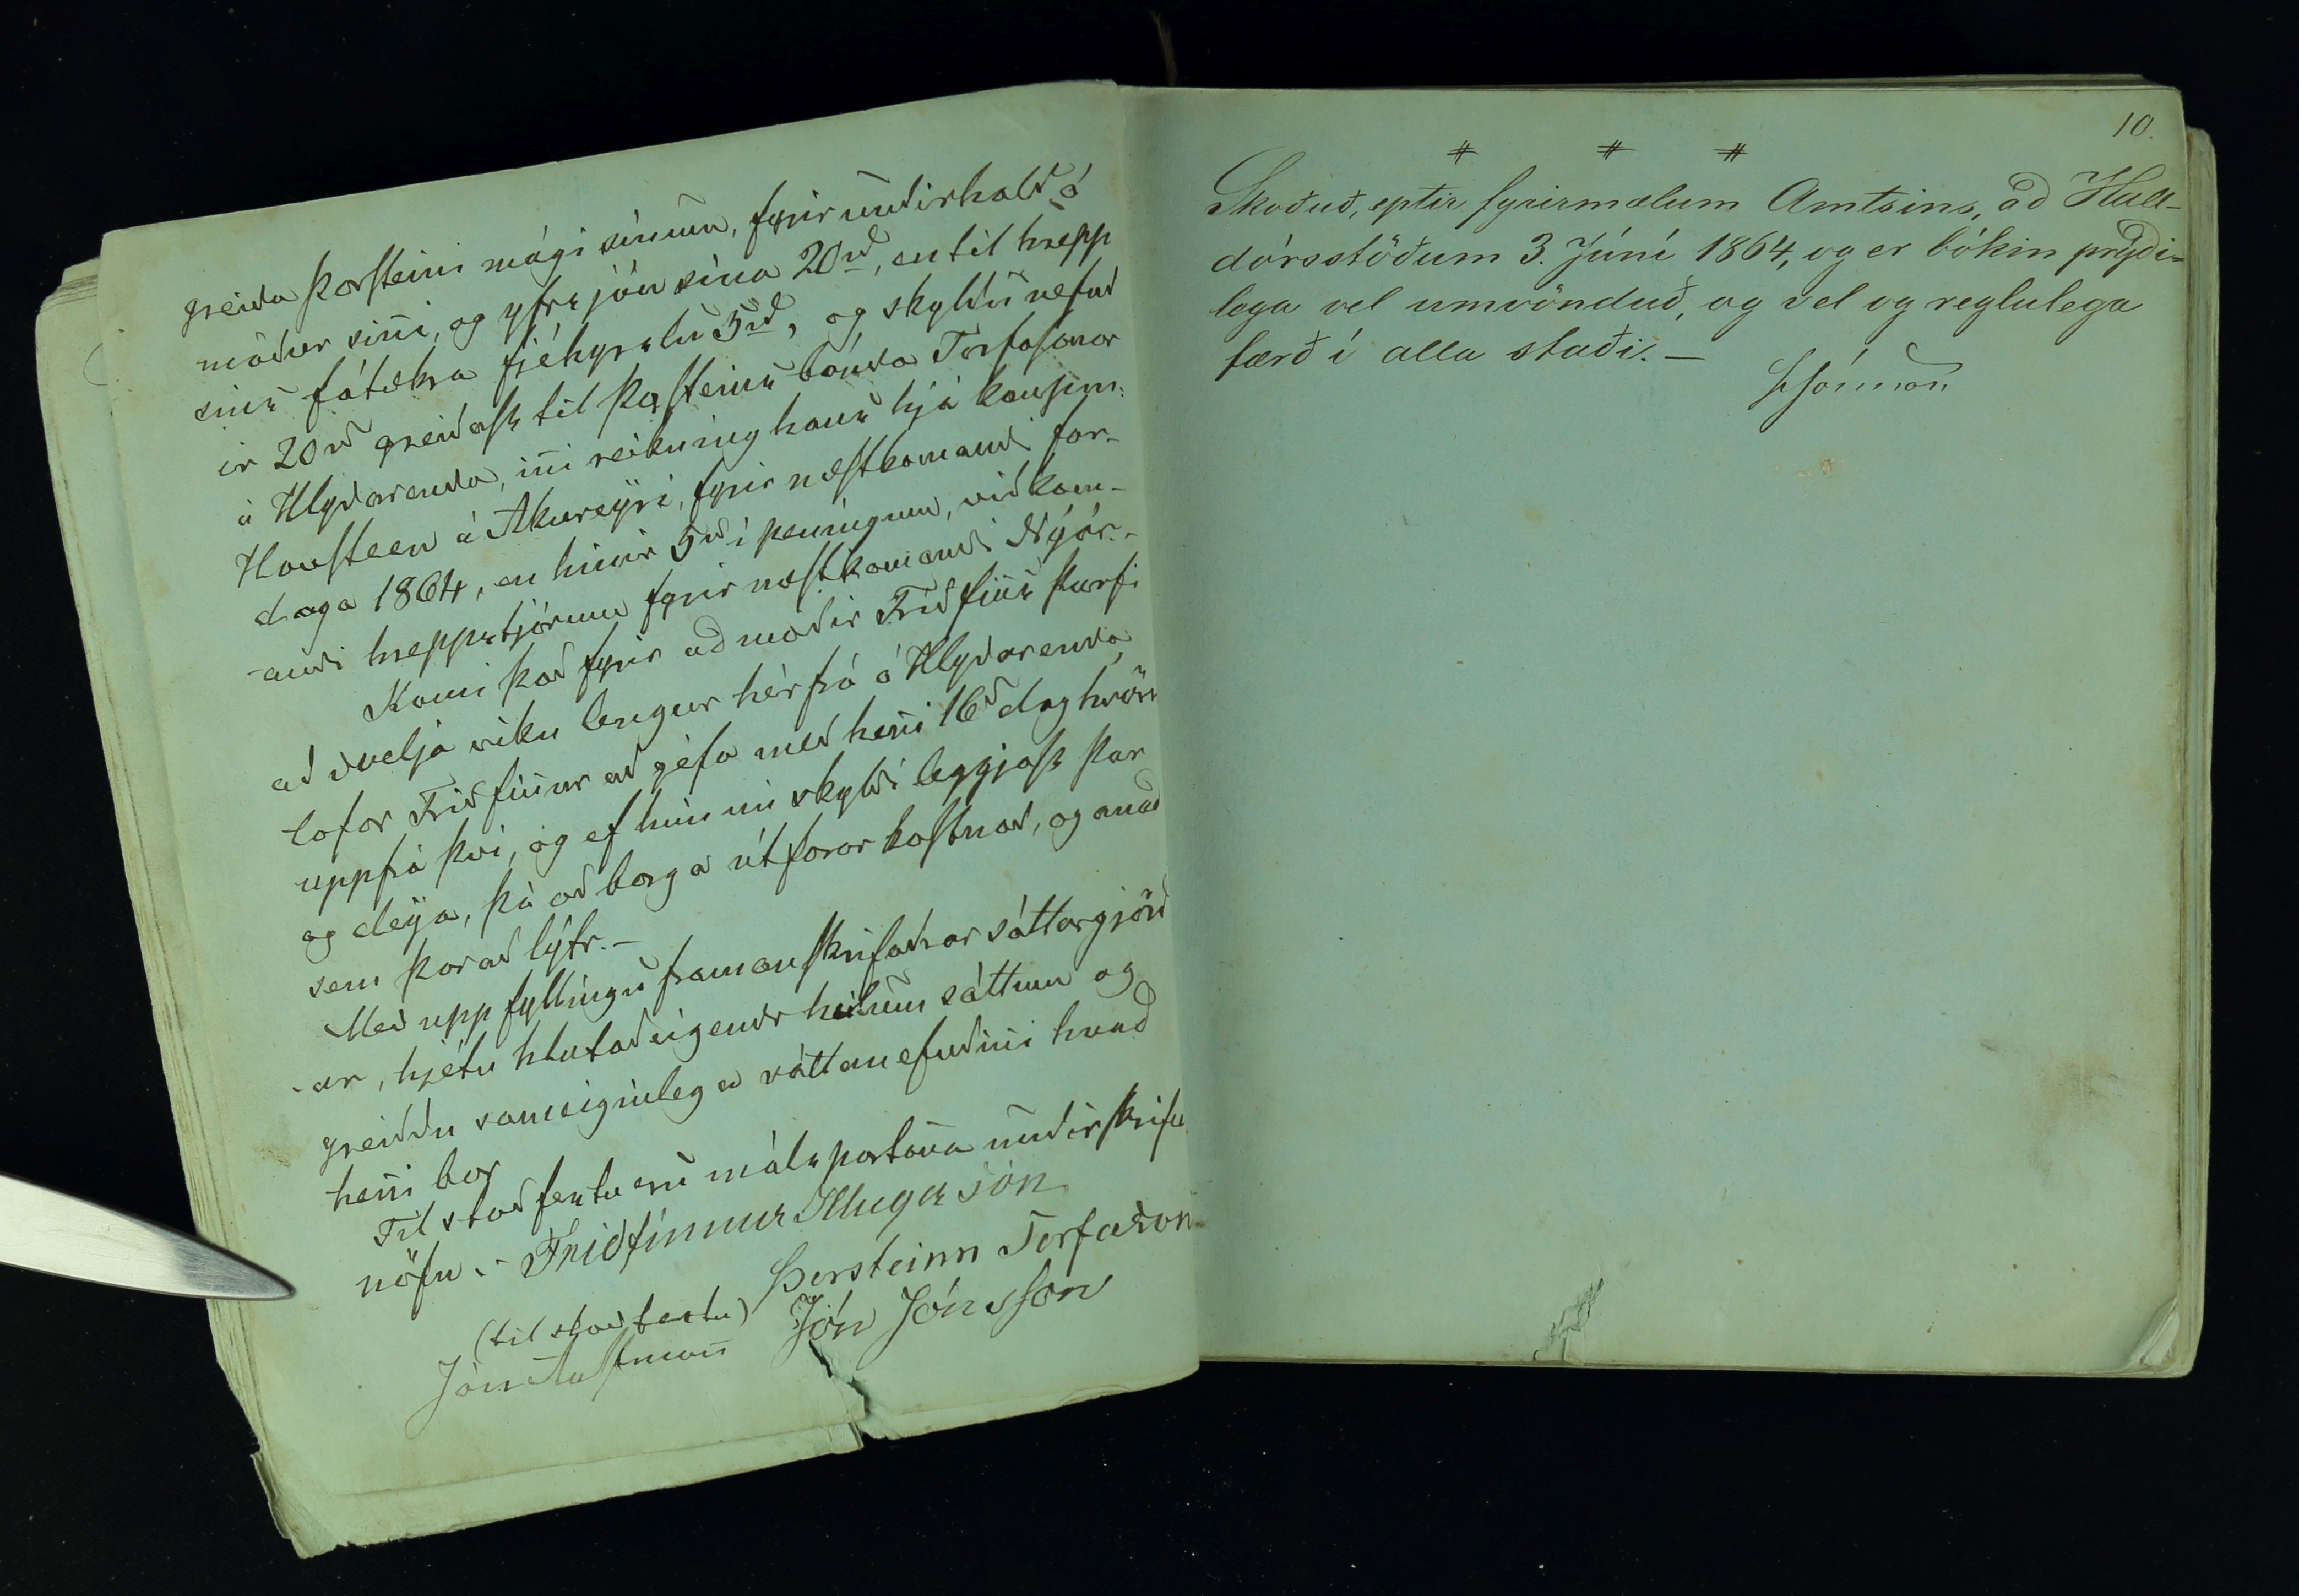 greiða Þorsteini mági sínum, fyrir undirhald á
móður siñi, og yfrsjón sína 20rd, en til hrepp
sins fátækra fjéhyrslu 5rd, og skyldu nefnd
ir 20rd greiðast til Þorsteins bónda Torfasonar
á Hlyðarenda, iñi reikning hans hjá kaupm:
Havsteen á Akureÿri, fyrir næstkomandi far-
daga 1864, en hinir 5rd í peníngum, viðkom-
-andi hreppstjórum fyrir næstkomandi Nýár.-
Komi það fyrir að moðir Friðfiñs þurfi
að dvelja viku lengur hérfrá á Hlyðarenda,
lofar Friðfiñur að géfa með heñi 16d dag hvörn
uppfrá því, og ef hún nú skyldi leggjast þar
og deÿa, þá að borga útfarar kostnað, og annað
sem þarað lýtr.-
Með uppfyllíngu framanskrifaðrar sáttargjörð
-ar, hjétu hlutaðeigendr heilum sáttum og
greiddu sameiginlega sáttanefndiñi hvað
heñi bar
Til staðfestu eru málspartaña undirskrifu
nöfn.- Friðfinnur Illugason
Þorsteinn Torfason
(til staðfestu) Jón Jónsson
Jón Austmañ
10.
# # #
Skoðuð, eptir fyrirmælum Amtsins, að Hall-
dórsstöðum 3. Júní 1864, og er bókin prýði-
lega vel umvönduð, og vel og reglulega
færð í alla staði. –